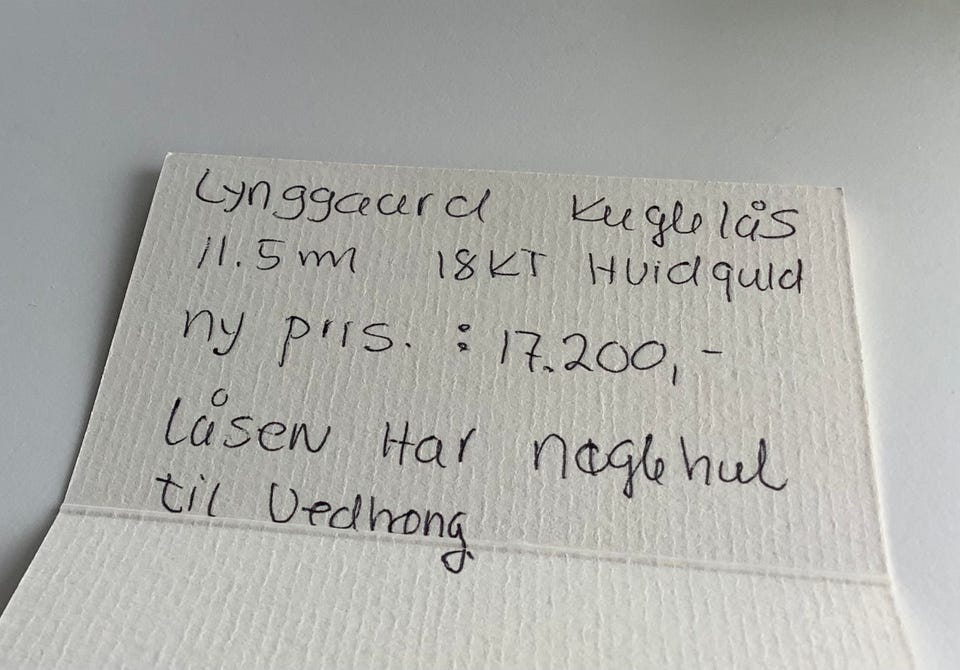 Lynggaard Kuglelås
11.5 m 18KT Hvidguld
ny pris. : 17.200,-
Låsen Har nøglehul
til Vedhæng